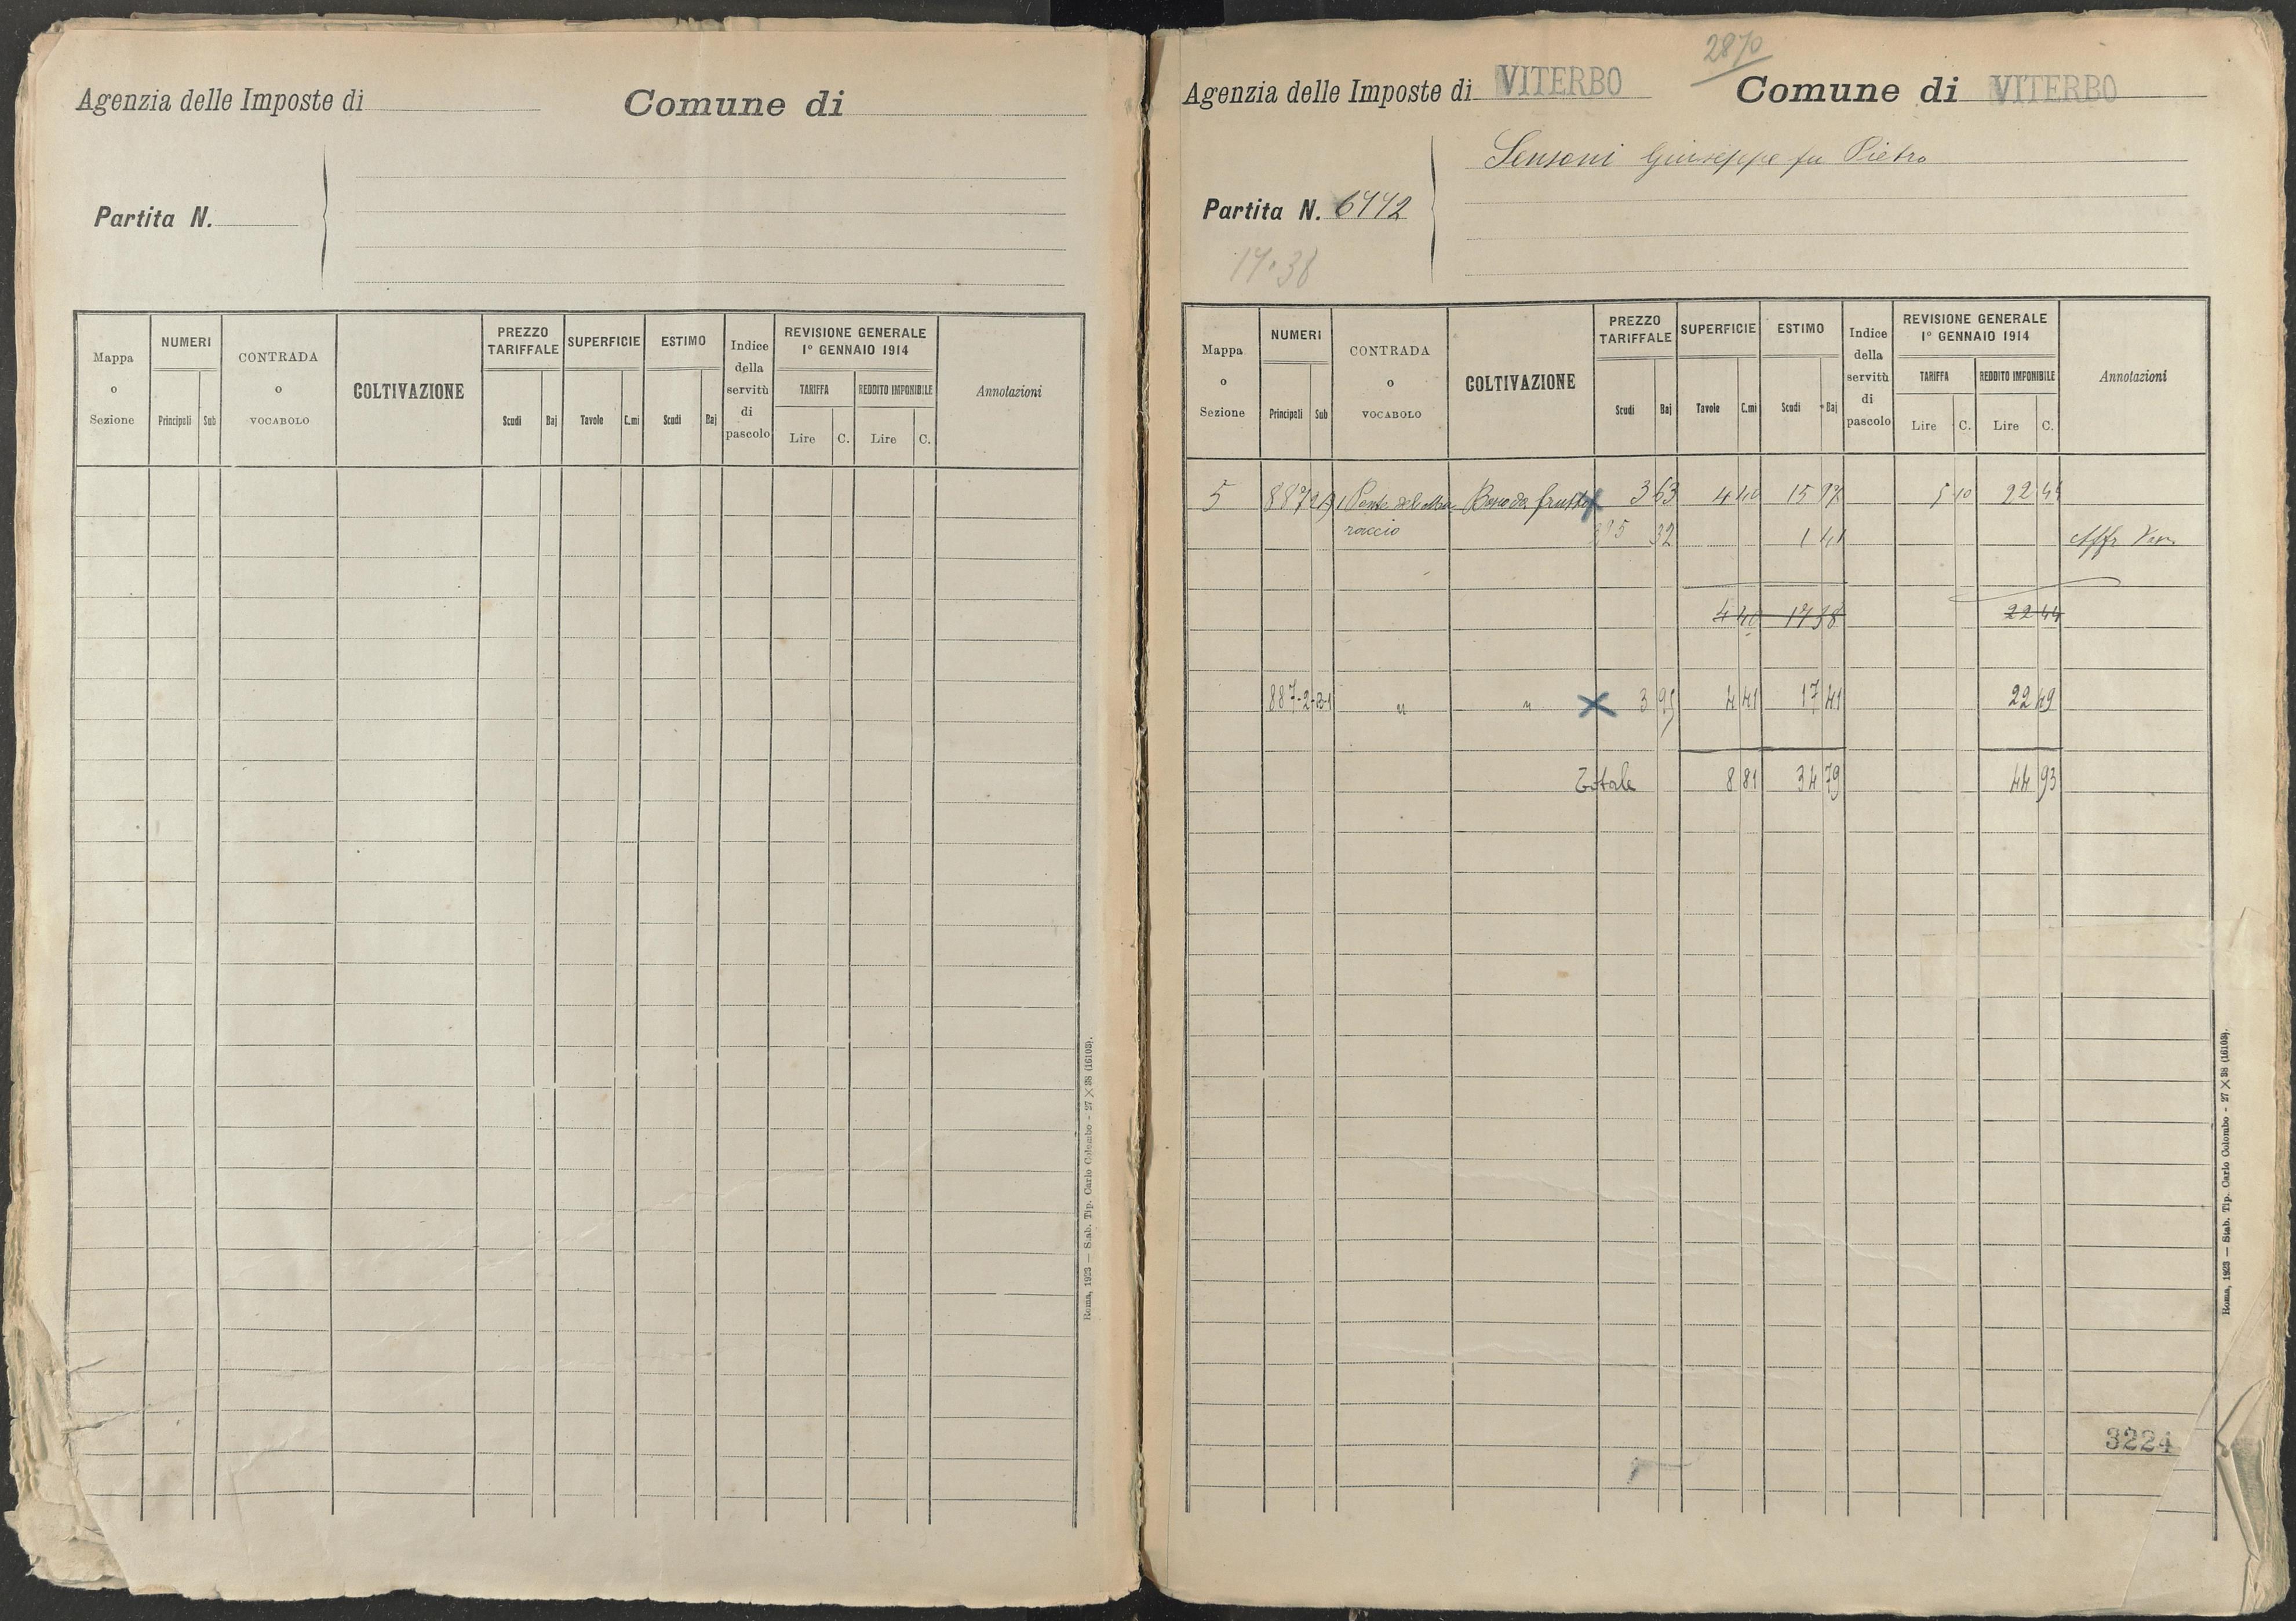 Agenzia delle Imposte di
Comune di
Partita N.
Mappa o Sezione
NUMERI
Principali Sub
CONTRADA o VOCABOLO
COLTIVAZIONE
PREZZO TARIFFALE
Scudi Baj
SUPERFICIE
Tavole C.mi
ESTIMO
Scudi Baj
Indice della servitù di pascolo
REVISIONE GENERALE
1° GENNAIO 1914
TARIFFA
Lire C.
REDDITO IMPONIBILE
Lire C.
Annotazioni
Roma, 1923 — Stab. Tip. Carlo Colombo - 27 × 38 (16103).
2870
Agenzia delle Imposte di VITERBO
Comune di VITERBO
Sensoni Giuseppe fu Pietro
Partita N. 6442
17.38
Mappa o Sezione
NUMERI
Principali Sub
CONTRADA o VOCABOLO
COLTIVAZIONE
PREZZO TARIFFALE
Scudi Baj
SUPERFICIE
Tavole C.mi
ESTIMO
Scudi Baj
Indice della servitù di pascolo
REVISIONE GENERALE
1° GENNAIO 1914
TARIFFA
Lire C.
REDDITO IMPONIBILE
Lire C.
Annotazioni
5 887 2 Bosco da frutto 3 63 4 40 15 97 5 10 22 44
32 1 41
4 40 17 38 22 44
887-2-B-1 " " 3 95 4 41 17 41 22 49
Totale 8 81 34 79 44 93
3224
Roma, 1923 — Stab. Tip. Carlo Colombo - 27 × 38 (16103).